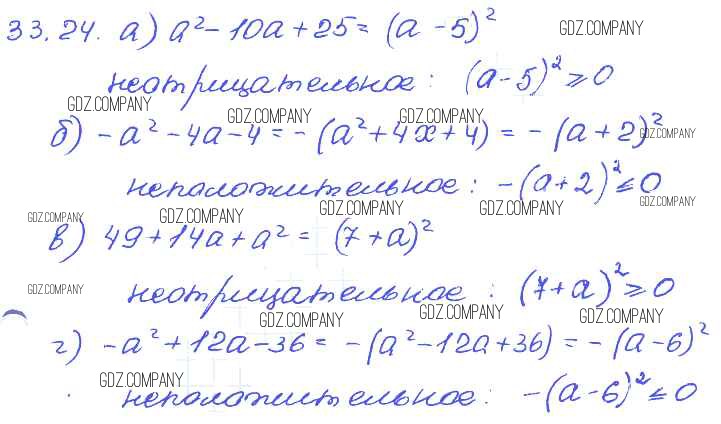 33.24. а) a² - 10a + 25 = (a - 5)² GDZ.COMPANY
неотрицательное: (a - 5)² ≥ 0
GDZ.COMPANY GDZ.COMPANY GDZ.COMPANY
б) -a² - 4a - 4 = -(a² + 4x + 4) = -(a + 2)² GDZ.COMPANY
неположительное: -(a + 2)² ≤ 0
GDZ.COMPANY GDZ.COMPANY GDZ.COMPANY GDZ.COMPANY GDZ.COMPANY
в) 49 + 14a + a² = (7 + a)²
GDZ.COMPANY неотрицательное: (7 + a)² ≥ 0
GDZ.COMPANY GDZ.COMPANY GDZ.COMPANY
г) -a² + 12a - 36 = -(a² - 12a + 36) = -(a - 6)²
GDZ.COMPANY
неположительное: -(a - 6)² ≤ 0